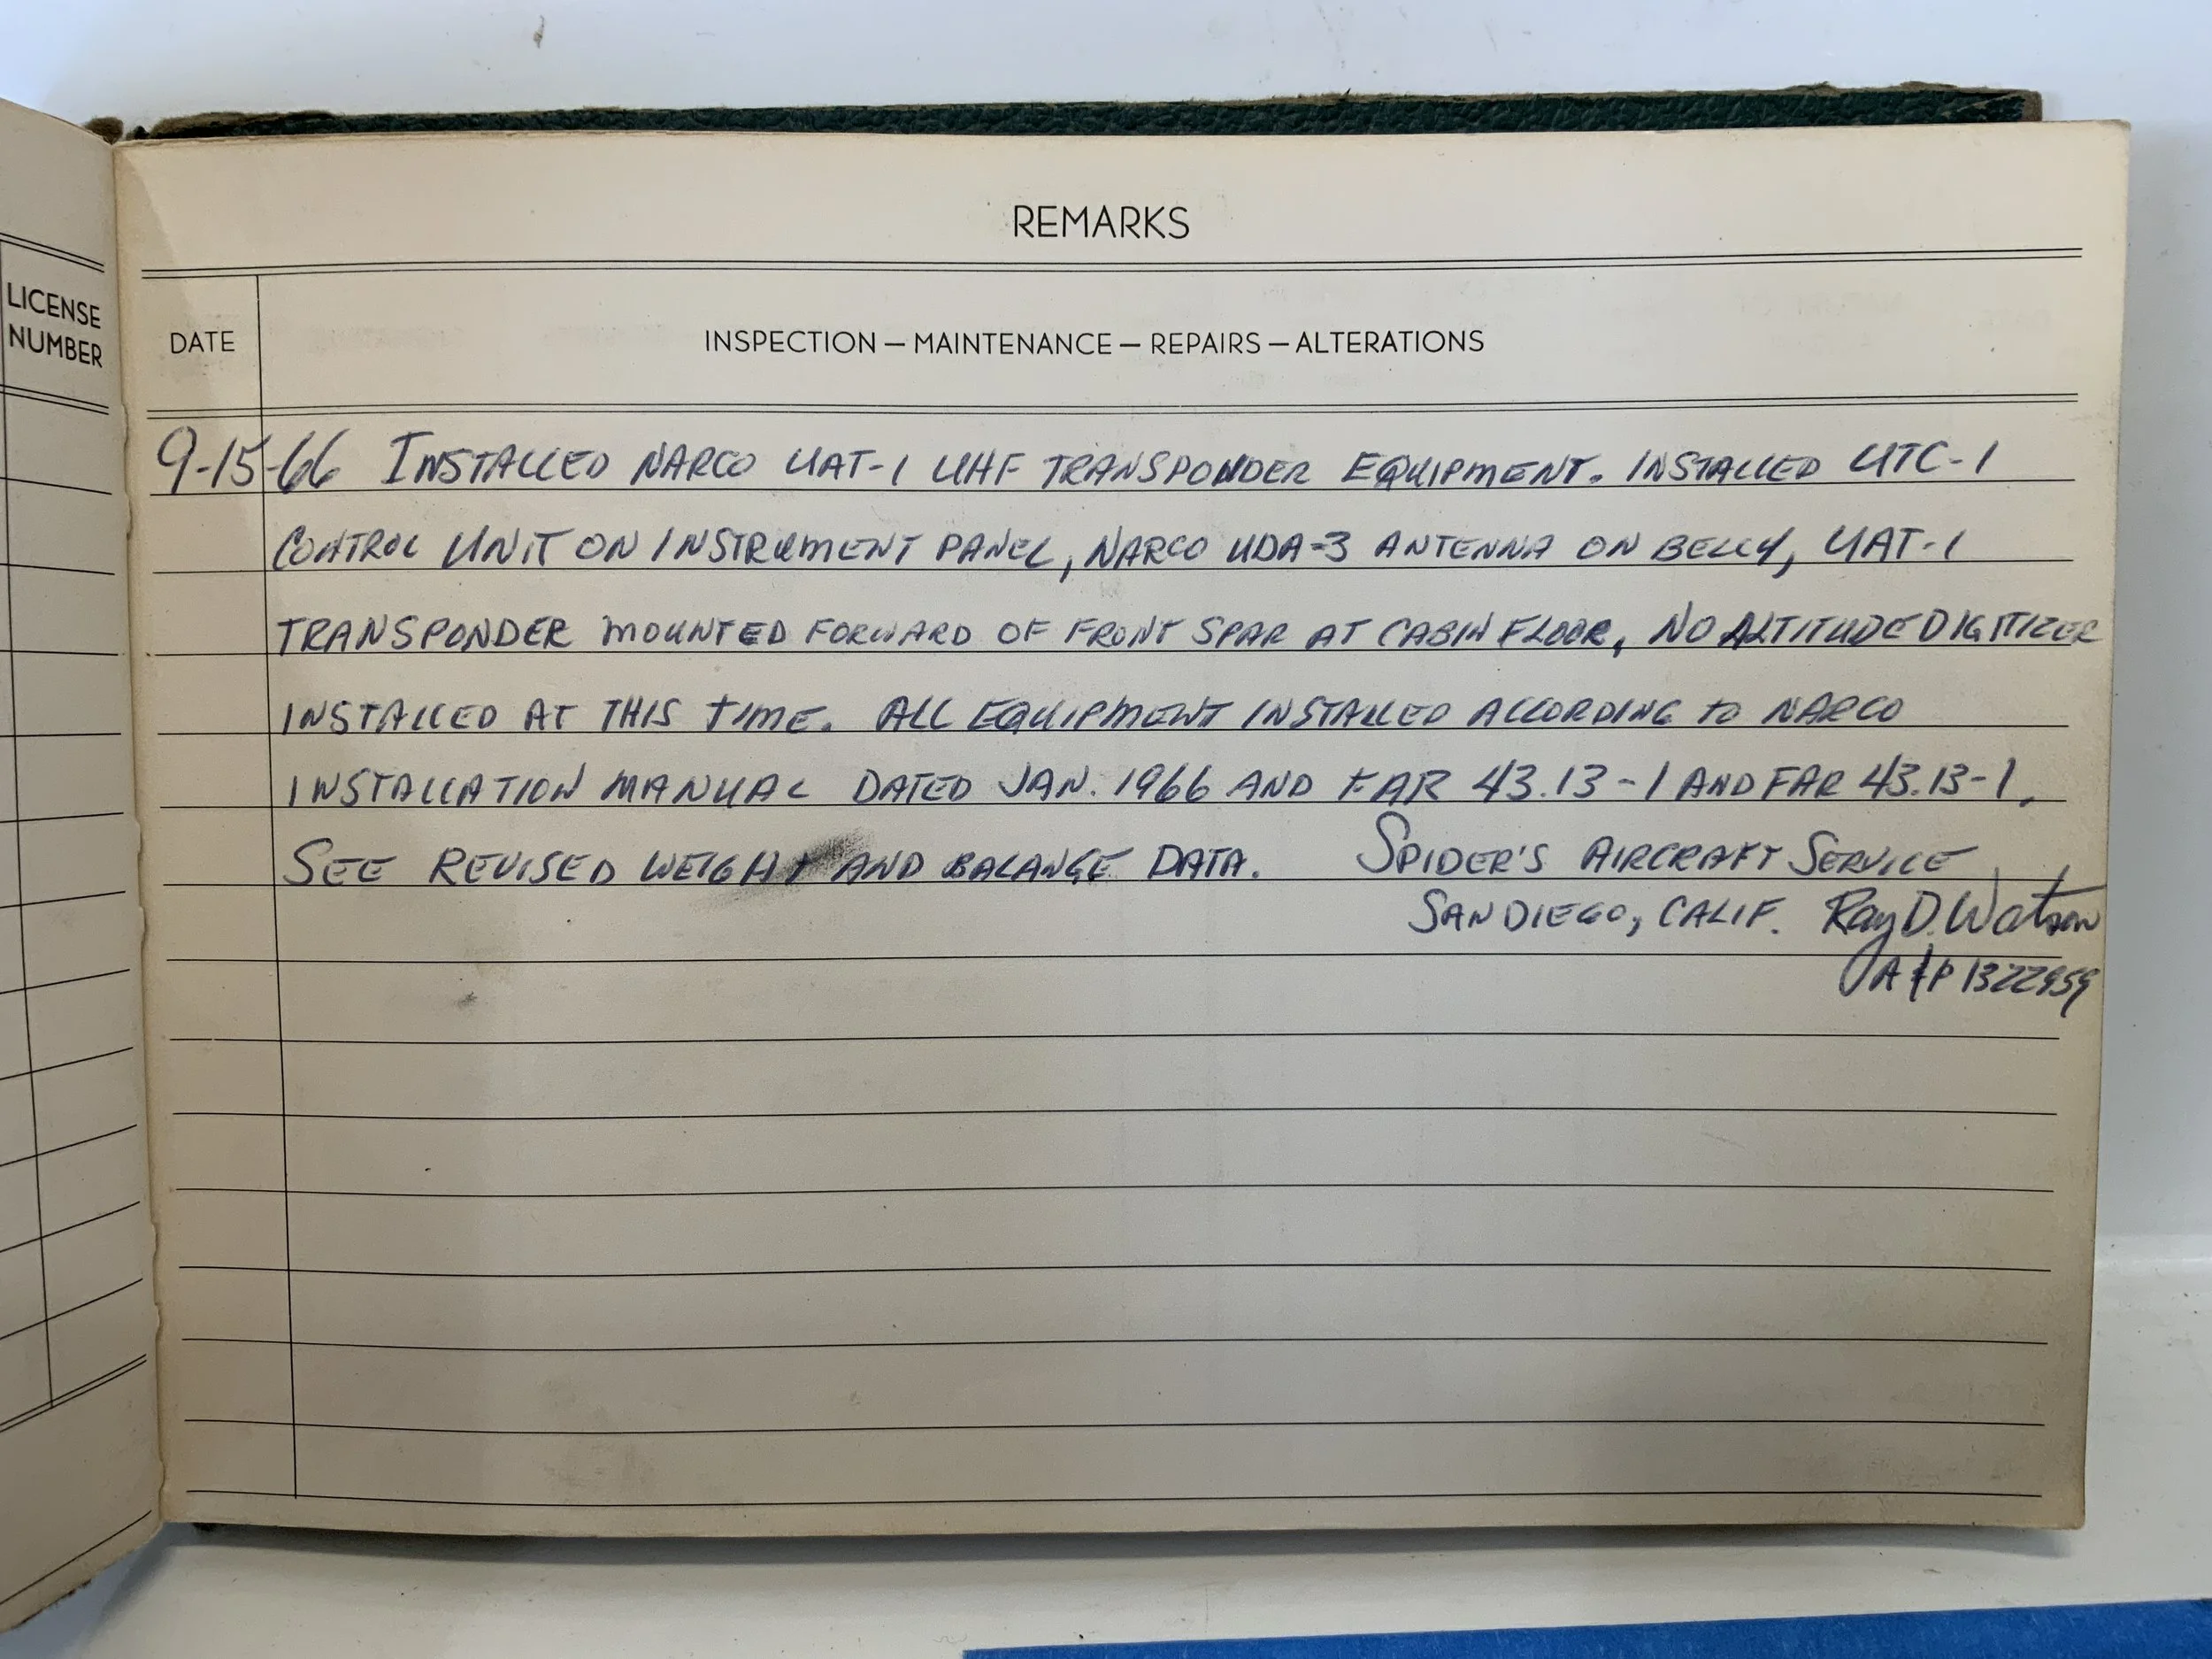 REMARKS
LICENSE
NUMBER
DATE
INSPECTION — MAINTENANCE — REPAIRS — ALTERATIONS
9-15-66 INSTALLED NARCO UAT-1 UHF TRANSPONDER EQUIPMENT. INSTALLED UTC-1
CONTROL UNIT ON INSTRUMENT PANEL, NARCO UDA-3 ANTENNA ON BELLY, UAT-1
TRANSPONDER MOUNTED FORWARD OF FRONT SPAR AT CABIN FLOOR, NO ALTITUDE DIGITIZER
INSTALLED AT THIS TIME. ALL EQUIPMENT INSTALLED ACCORDING TO NARCO
INSTALLATION MANUAL DATED JAN. 1966 AND FAR 43.13-1 AND FAR 43.13-1.
SEE REVISED WEIGHT AND BALANCE DATA. SPIDER'S AIRCRAFT SERVICE
SAN DIEGO, CALIF. Ray D. Watson
A & P 1322959